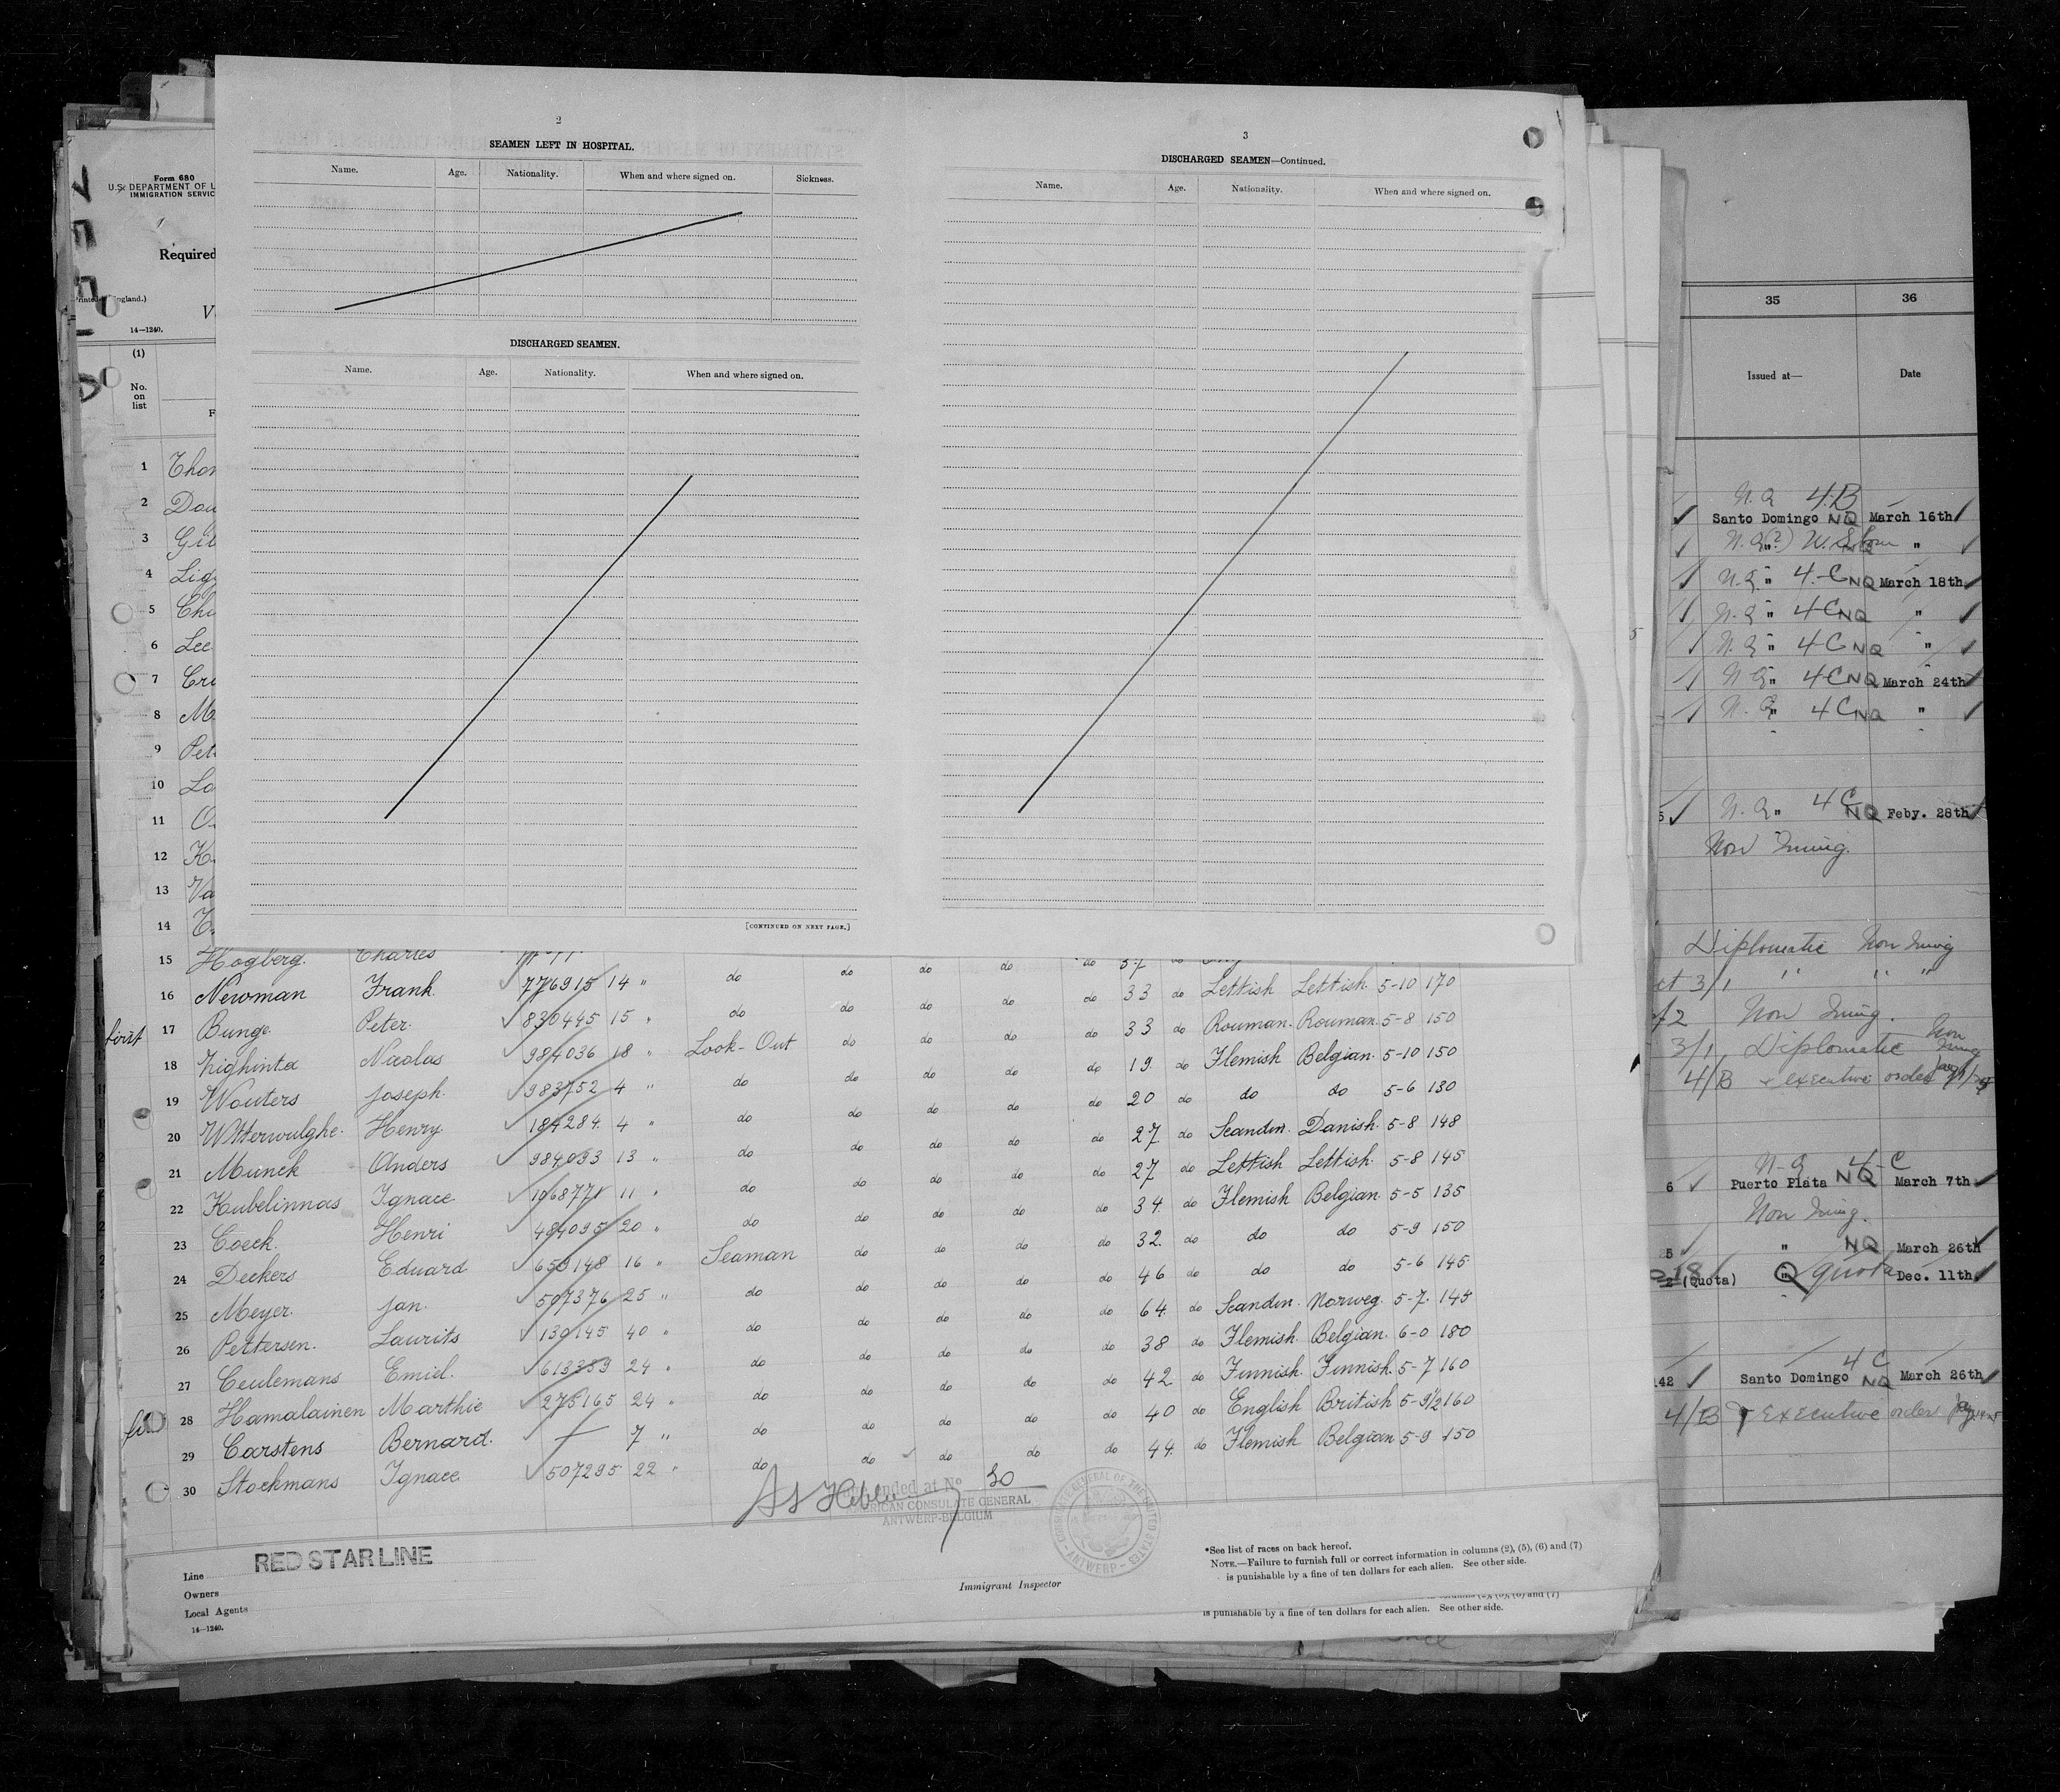 2
SEAMEN LEFT IN HOSPITAL.
Name. Age. Nationality. When and where signed on. Sickness.
DISCHARGED SEAMEN.
Name. Age. Nationality. When and where signed on.
[CONTINUED ON NEXT PAGE.]
3
DISCHARGED SEAMEN—Continued.
Name. Age. Nationality. When and where signed on.
Form 680
U.S. DEPARTMENT OF L
IMMIGRATION SERVIC
Required
14—1240.
(1)
No. on list
1 Thor
2 Dou
3
4 Lig
5 Chi
6 Lee
7 Cro
8 M
9 Pet
10 Lo
11 O
12 K
13 Va
14
15 Hogberg. Charles
16 Newman Frank 776915 14 " do do do do do 33 do Lettish Lettish 5-10 170
17 Bunge Peter. 830445 15 " do do do do do 33 do Rouman. Rouman. 5-8 150
18 Nicolas 984036 18 " Look-Out do do do do 19 do Flemish Belgian. 5-10 150
19 Wouters Joseph. 983752 4 " do do do do do 20 do do do 5-6 130
20 Witterwulghe. Henry 184284 4 " do do do do do 27 do Scandin. Danish. 5-8 148
21 Munck Anders 984093 13 " do do do do do 27 do Lettish Lettish. 5-8 145
22 Kubelinnas Ignace 1068771 11 " do do do do do 34 do Flemish Belgian. 5-5 135
23 Coeck. Henri 484095 20 " do do do do do 32 do do do 5-9 150
24 Deckers Eduard 659148 16 " Seaman do do do do 46 do do do 5-6 145
25 Meyer. Jan. 507376 25 " do do do do do 64 do Scandin. Norweg. 5-7 148
26 Pettersen. Laurits 130145 40 " do do do do do 38 do Flemish. Belgian. 6-0 180
27 Ceulemans Emiel. 613389 24 " do do do do do 42 do Finnish. Finnish. 5-7 160
28 Hamalainen Marthie 275165 24 " do do do do do 40 do English British 5-9½ 160
29 Carstens Bernard. 7 " do do do do do 44 do Flemish Belgian 5-9 150
30 Stockmans Ignace 507295 22 " do do do do
30
AMERICAN CONSULATE GENERAL
ANTWERP-BELGIUM
Line RED STAR LINE
Owners
Local Agents
14—1240.
Immigrant Inspector
*See list of races on back hereof.
NOTE.—Failure to furnish full or correct information in columns (2), (5), (6) and (7)
is punishable by a fine of ten dollars for each alien. See other side.
is punishable by a fine of ten dollars for each alien. See other side.
35 36
Issued at— Date
N.Q 4.B
Santo Domingo NQ March 16th
N.Q "
N.Q " 4-C NQ March 18th
N.Q " 4C NQ "
N.Q " 4C NQ "
N.Q " 4C NQ March 24th
N.Q " 4C NQ "
N.Q " 4C NQ Feby. 28th
Non Immig.
Diplomatic Non Immig
3/1 " " "
Non Immig.
3/1 Diplomatic Non Immig
4/B executive order
N-Q 4-C
6 Puerto Plata NQ March 7th
Non Immig.
5 " NQ March 26th
(Quota) " Quota Dec. 11th
4C
142 Santo Domingo NQ March 26th
4/B executive order